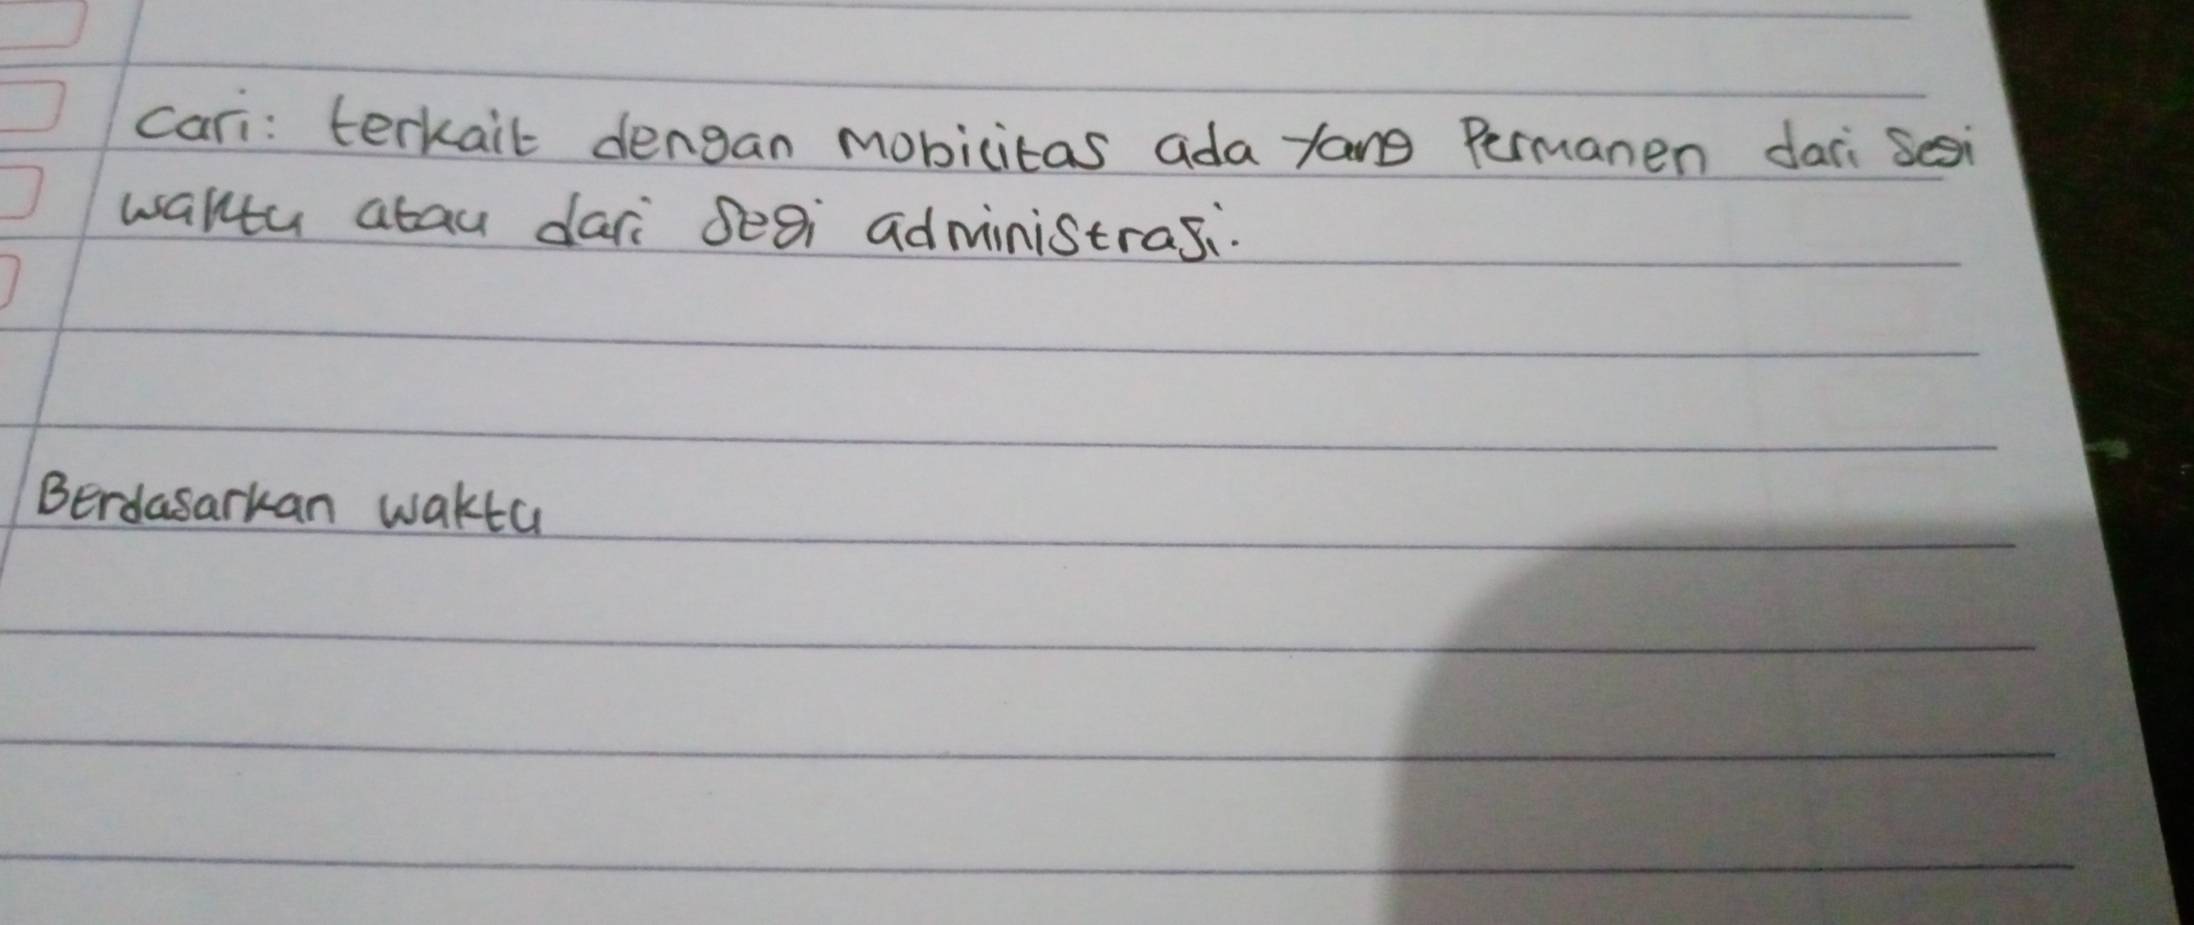 Cari: terkait dengan mobilitas ada yang Permanen dari segi
waktu atau dari segi administrasi.
Berdasarkan waktu